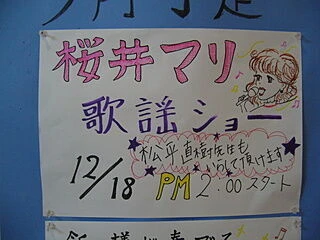 桜井マリ
歌謡ショー
松平直樹先生も
いらして頂けます
12/18 PM 2:00 スタート